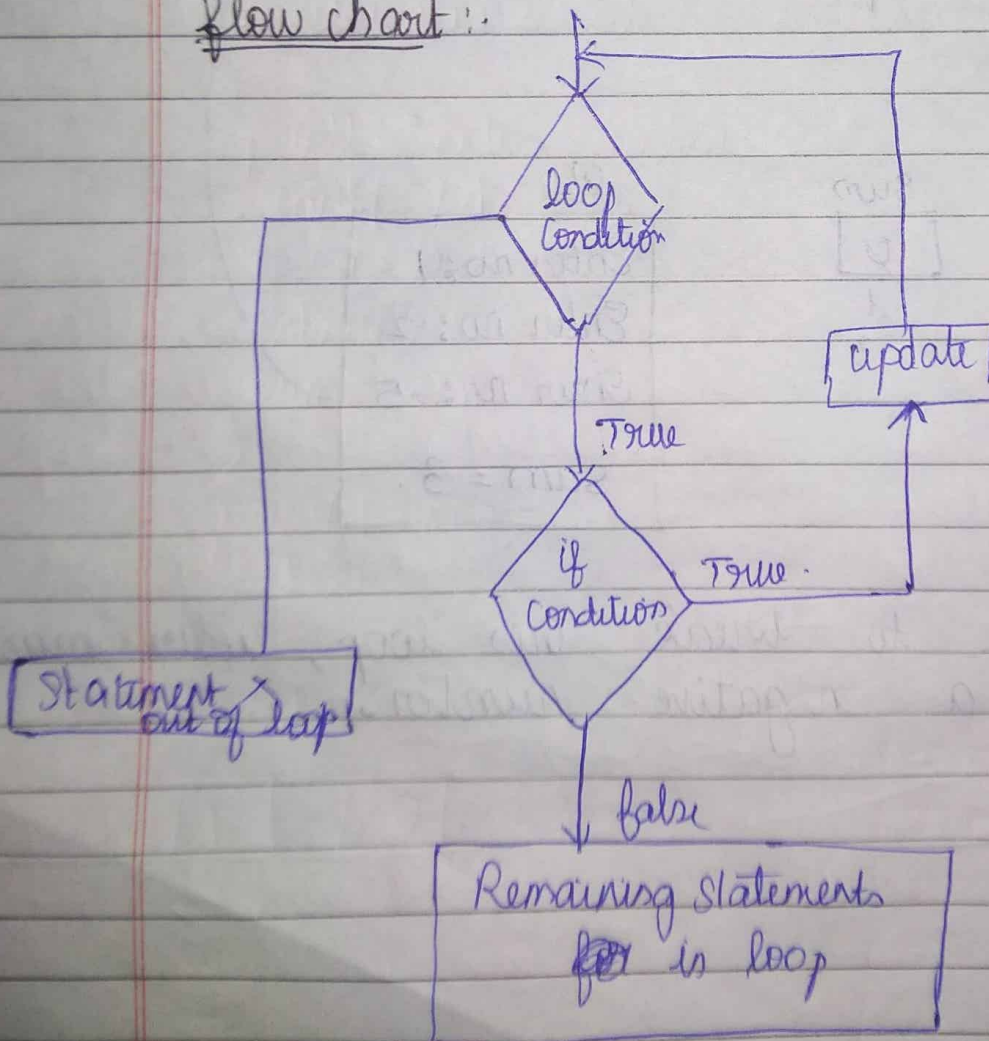 flow chart :.
loop
Condition
update
True
if
Condition
True.
Statement
out of loop
false
Remaining statements
in loop